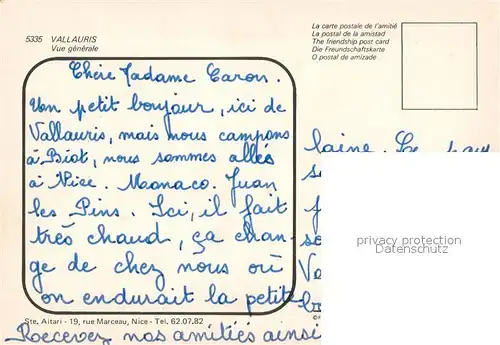 5335 VALLAURIS
Vue générale
La carte postale de l'amitié
La postal de la amistad
The friendship post card
Die Freundschaftskarte
O postal de amizade
Chère Madame Caron.
Un petit boujour, ici de
Vallauris, mais nous campons
à Biot, nous sommes allés
à Nice. Monaco. Juan
les Pins. Ici, il fait
très chaud, ça chan-
ge de chez nous où
on endurait la petite
laine. Ce
privacy protection
CARTE-POSTALE.DE
Ste. Aitari - 19, rue Marceau, Nice - Tel. 62.07.82
Recevez nos amitiés ainsi